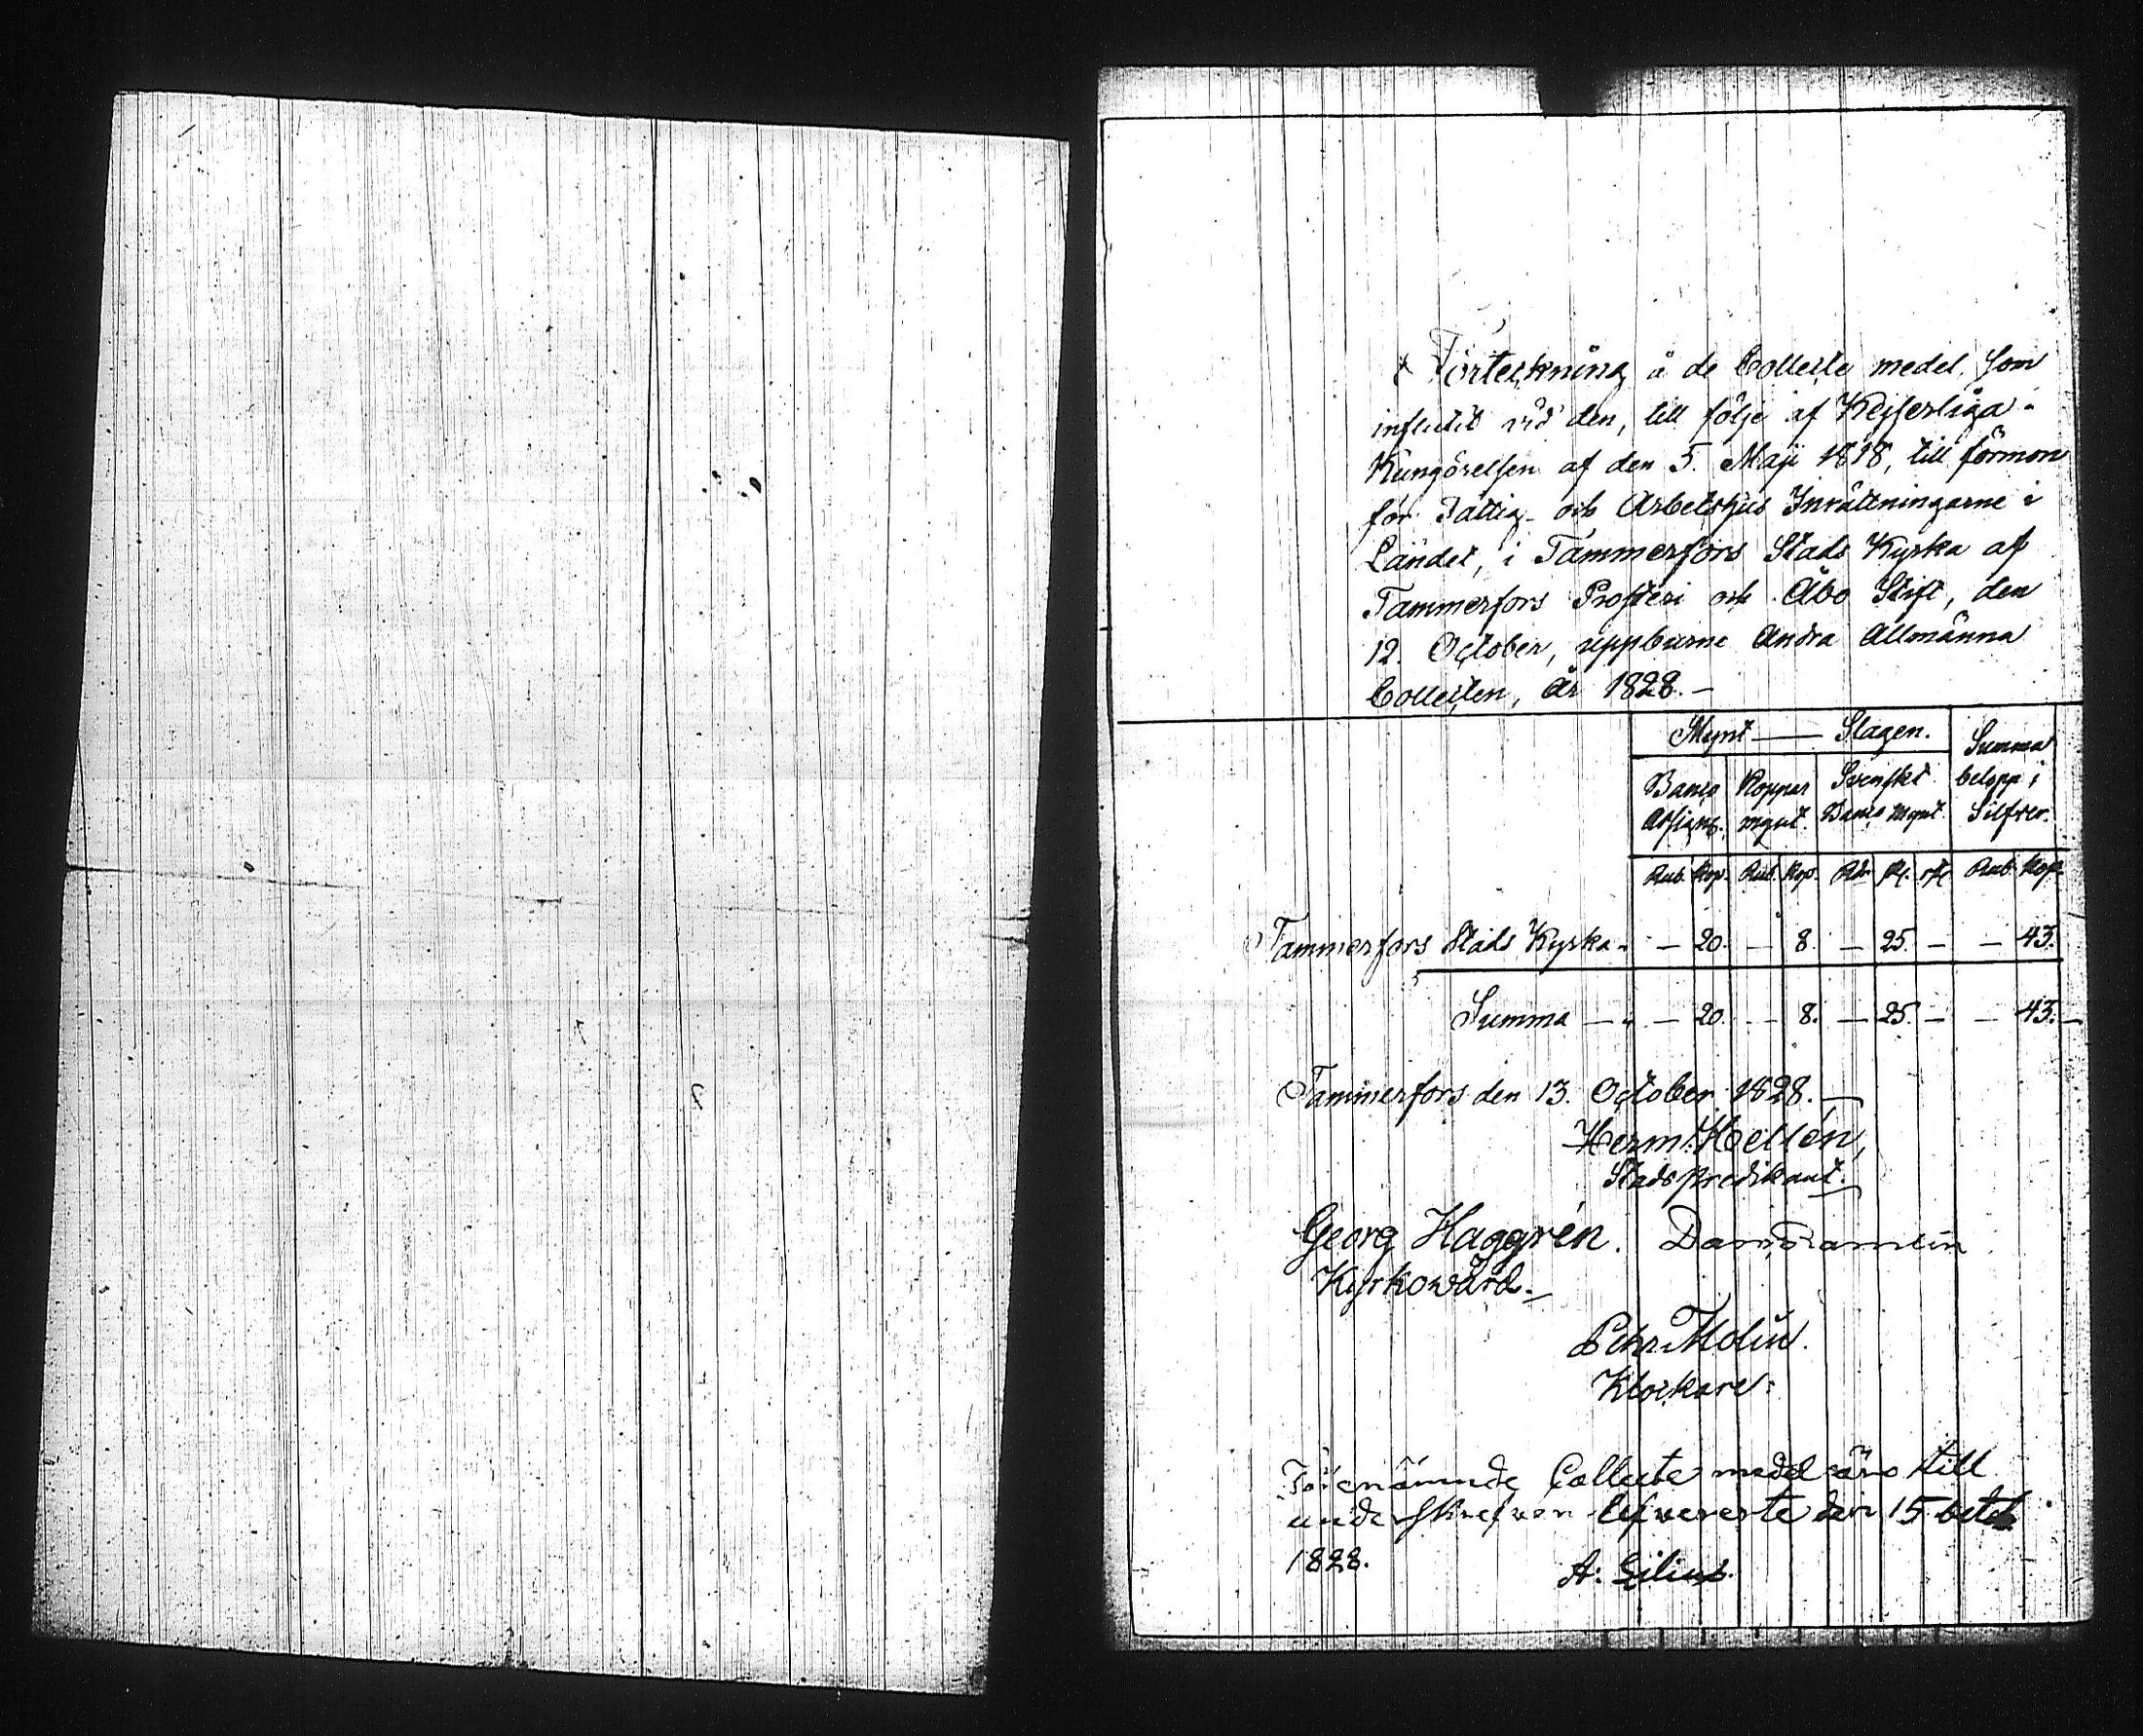 Förteckning å de Collecte medel, som
influtit vid den, till följe af Kejserliga
Kungörelsen af den 5. Maji 1818, till förmon
för Fattig- och Arbetshus Inrättningarne i
Landet, i Tammerfors Stads Kyrka af
Tammerfors Prosteri och Åbo Stift, den
12. October, uppburne Andra Allmänna
Collecten, år 1828.—
Mynt — Slagen. Summa
Banco Koppar Svenskt belopp i
Assign. mynt. Banco Mynt. Silfver.
Rub. Kop. Rub. Kop. Rdr. Rub. Kop.
Tammerfors Stads Kyrka — 20. — 8. — 25. — — 43.
Summa — — 20. — 8. — 25. — — 43.—
Tammerfors den 13. October 1828.—
Herm. Hellén,
Stads predikant.
Georg Haggrén.
Kyrkovärd.—
Pehr Molin.
Klockare.
Förenämnde Collecte medel äro till
underskrefven lefvererte den 15
1828.